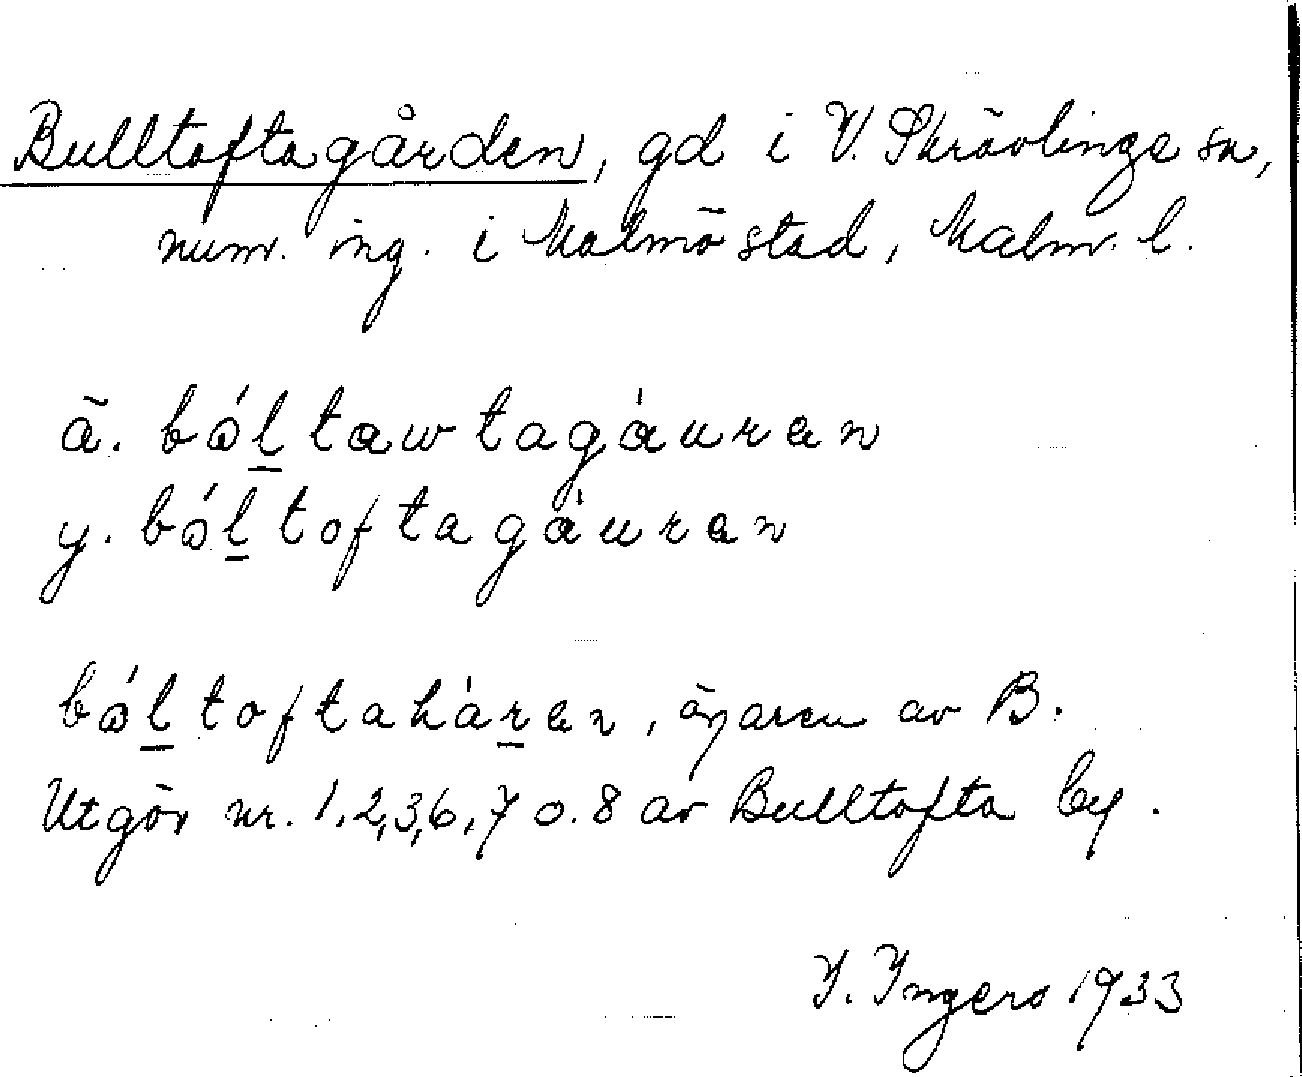 Bulltoftagården, gd i V. Skrävlinge sn,
num. ing. i Malmö stad, Malm. l.
ä. bɷ́l̲tawtagáuran
y. bɷ́l̲toftagáuran
bɷ́l̲toftahár̲an, ägaren av B.
Utgör nr. 1,2,3,6,7 o. 8 av Bulltofta by.
I. Ingers 1933